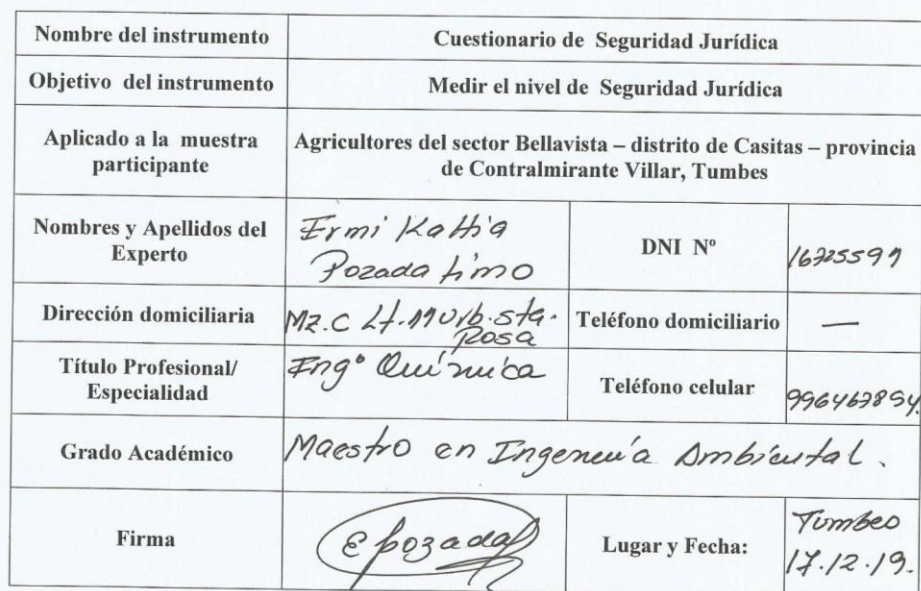 Nombre del instrumento
Cuestionario de Seguridad Jurídica
Objetivo del instrumento
Medir el nivel de Seguridad Jurídica
Aplicado a la muestra
participante
Agricultores del sector Bellavista – distrito de Casitas – provincia
de Contralmirante Villar, Tumbes
Nombres y Apellidos del
Experto
Ermi Kattia
Pozada Limo
DNI Nº
Dirección domiciliaria
Mz.C Lt.11 Urb. Sta.
Rosa
Teléfono domiciliario
—
Título Profesional/
Especialidad
Ingº Química
Teléfono celular
Grado Académico
Maestro en Ingeneuía Ambiental.
Firma
Epozada
Lugar y Fecha:
Tumbes
17.12.19.